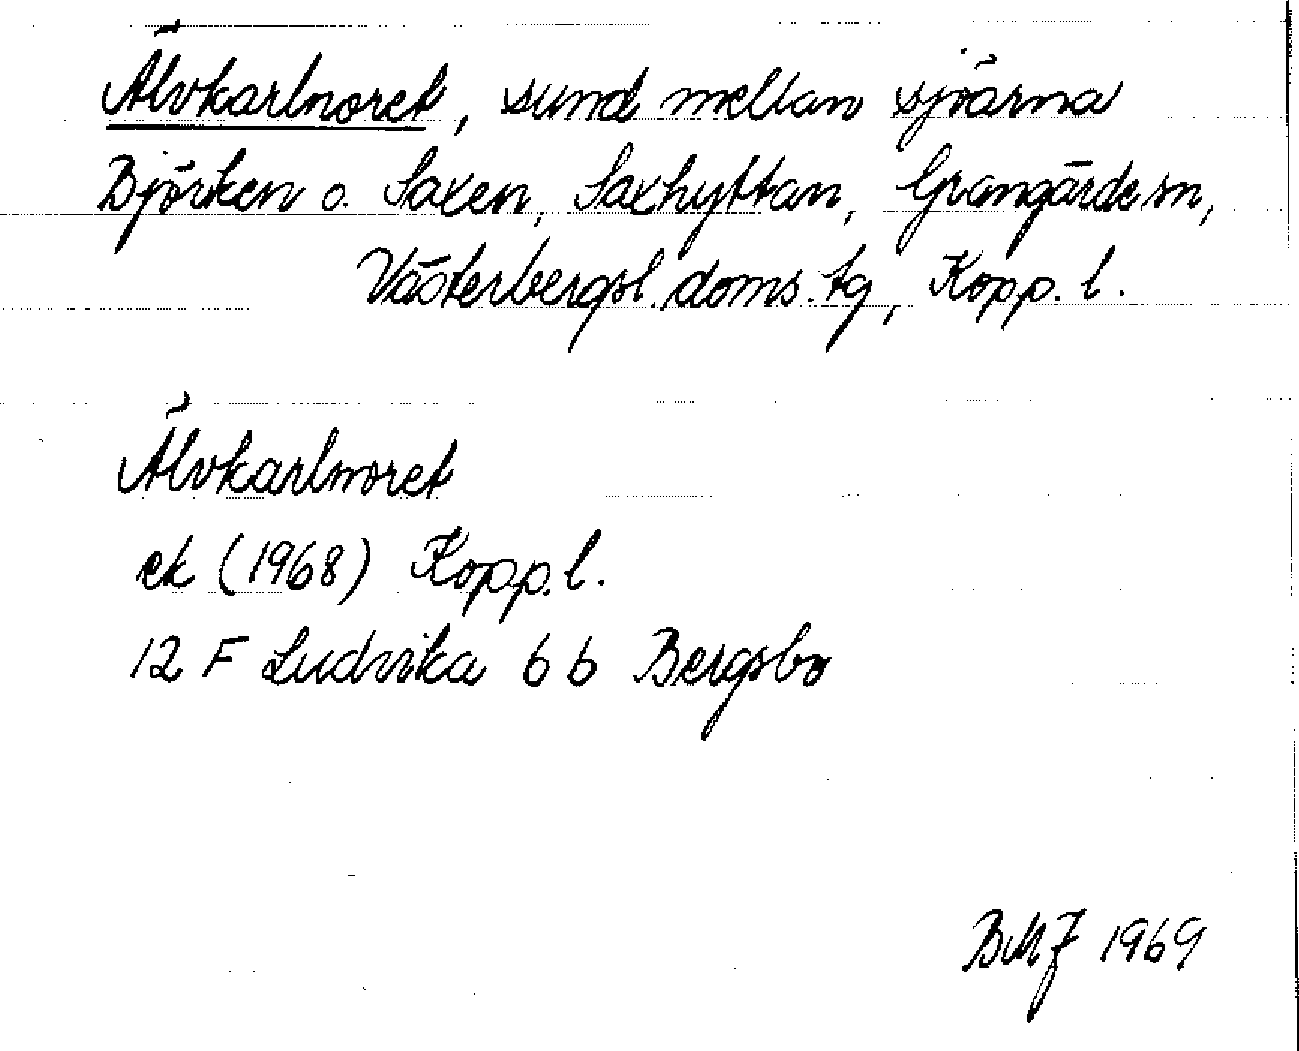 Älvkarlnoret, sund mellan sjöarna
Björken o. Saxen, Saxhyttan, Grangärde sn,
Västerbergsl. doms. tg, Kopp. l.
Älvkarlnoret
ek (1968) Kopp. l.
12 F Ludvika 6 b Bergsbo
BMJ 1969